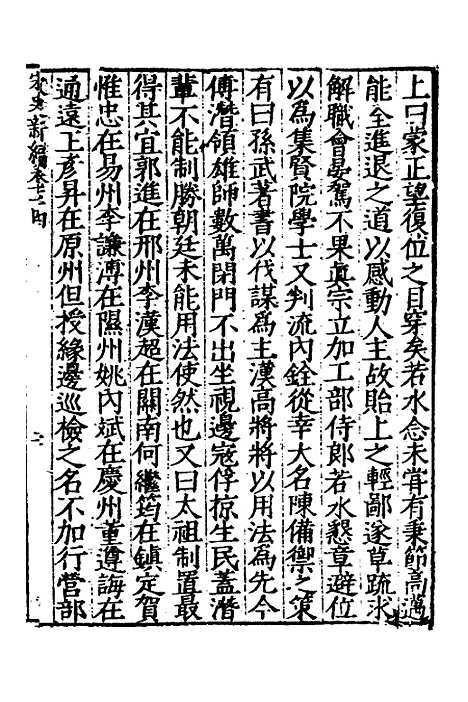 上曰蒙正望復位之目穿矣若水念未甞有秉節高邁
能全進退之道以感動人主故貽上之輕鄙遂草疏求
解職會晏駕不果眞宗立加工部侍郎若水懇章避位
以爲集賢院學士又判流內銓從幸大名陳備禦之策
有曰孫武著書以伐謀爲主漢高將將以用法爲先今
傅潛領雄師數萬閉門不出坐視邊寇俘掠生民蓋潛
輩不能制勝朝廷未能用法使然也又曰太祖制置最
得其宜郭進在邢州李漢超在關南何繼筠在鎮定賀
惟忠在易州李謙溥在隰州姚內斌在慶州董遵誨在
通遠王彥昇在原州但授緣邊巡檢之名不加行營部
宋史新編卷七十四
二